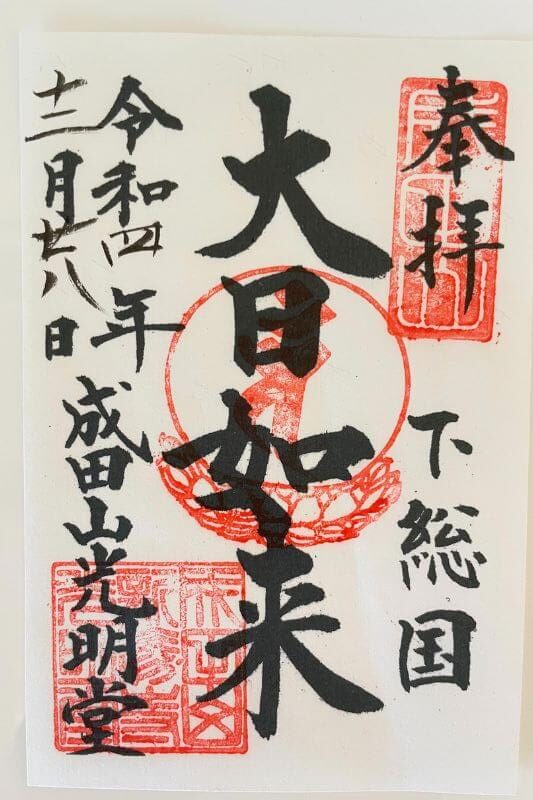 奉拝
下総国
大日如来
令和四年
十二月廿八日
成田山光明堂